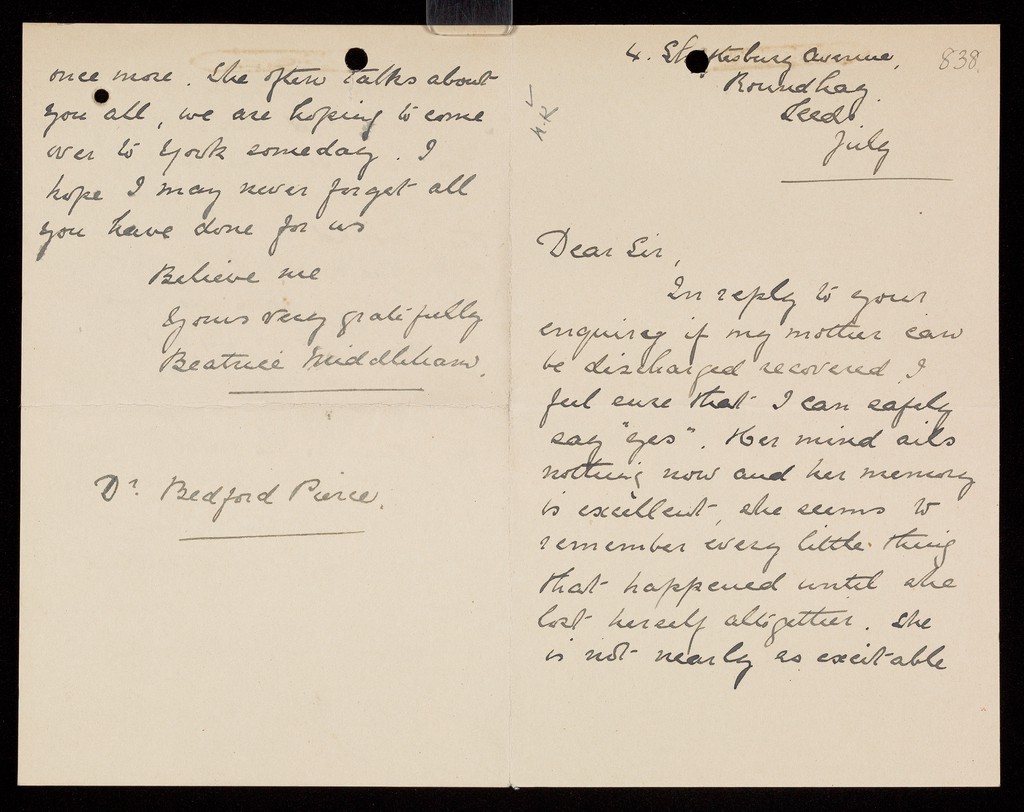 4. Shaftesbury Avenue,
838.
Roundhay
Leeds
July
Dear Sir,
In reply to your
enquirey if my mother can
be discharged recovered I
feel sure that I can safely
say "yes". Her mind ails
nothing now and her memory
is excellent, she seems to
remember every little thing
that happened until she
lost herself altogether. She
is not nearly as excitable
once more. She often talks about
you all, we are hoping to come
over to York someday. I
hope I may never forget all
you have done for us
Believe me
Yours very gratefully
Beatrice Middleham.
Dr. Bedford Pierce.